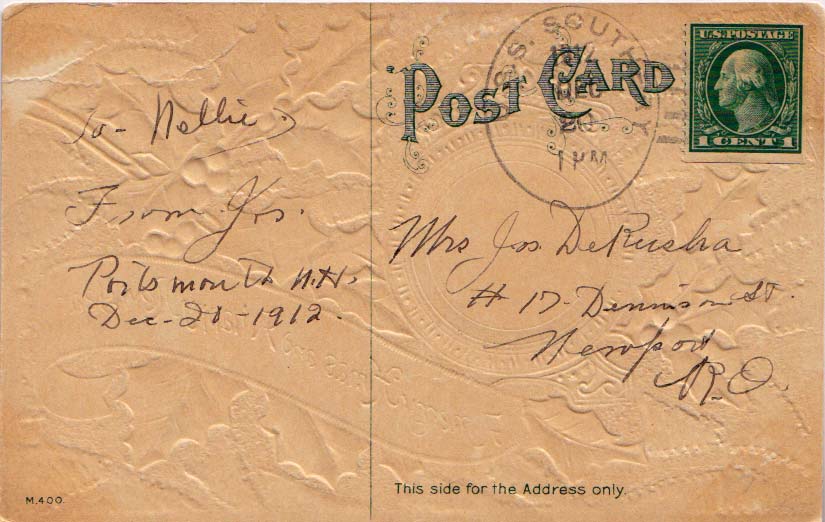 POST CARD
U.S. POSTAGE
1 CENT 1
U.S.S. SOUTHERY
DEC
20
1 PM
To - Nellie
From Jos.
Portsmouth N.H.
Dec-20-1912.
Mrs Jos. DeRusha
# 17- Dennison St.
Newport
R.I.
This side for the Address only.
M.400.